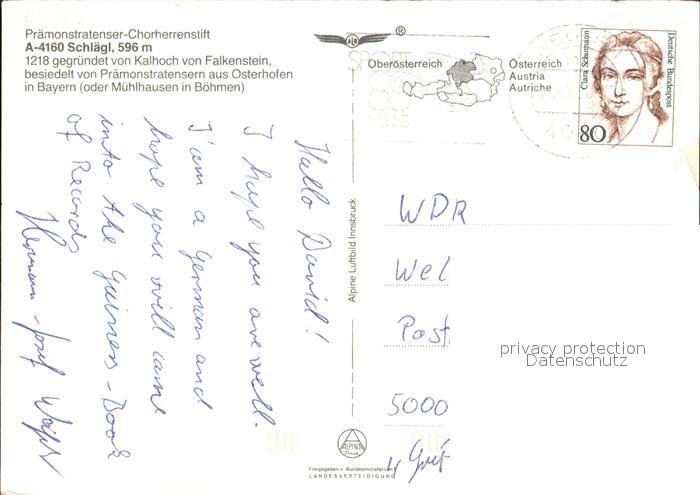 Prämonstratenser-Chorherrenstift
A-4160 Schlägl, 596 m
1218 gegründet von Kalhoch von Falkenstein,
besiedelt von Prämonstratensern aus Osterhofen
in Bayern (oder Mühlhausen in Böhmen)
®
Oberösterreich
Österreich
Austria
Autriche
Clara Schumann
Deutsche Bundespost
80
Hallo David!
I hope you are well.
I'am a German and
hope you will come
into the Guiness-Book
of Records
Hermann-Josef
Alpine Luftbild Innsbruck
WDR
Wel
Post
5000
privacy protection
Datenschutz
ALPINA
Druck
Freigegeben v. Bundesministerium f.
LANDESVERTEIDIGUNG